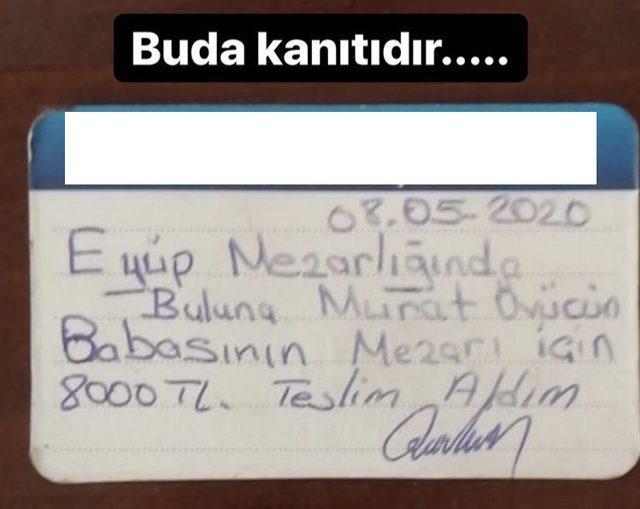 Buda kanıtıdır.....
08.05-2020
Eyüp Mezarlığında
Buluna Murat Övücün
Babasının Mezarı için
8000 TL. Teslim Aldım